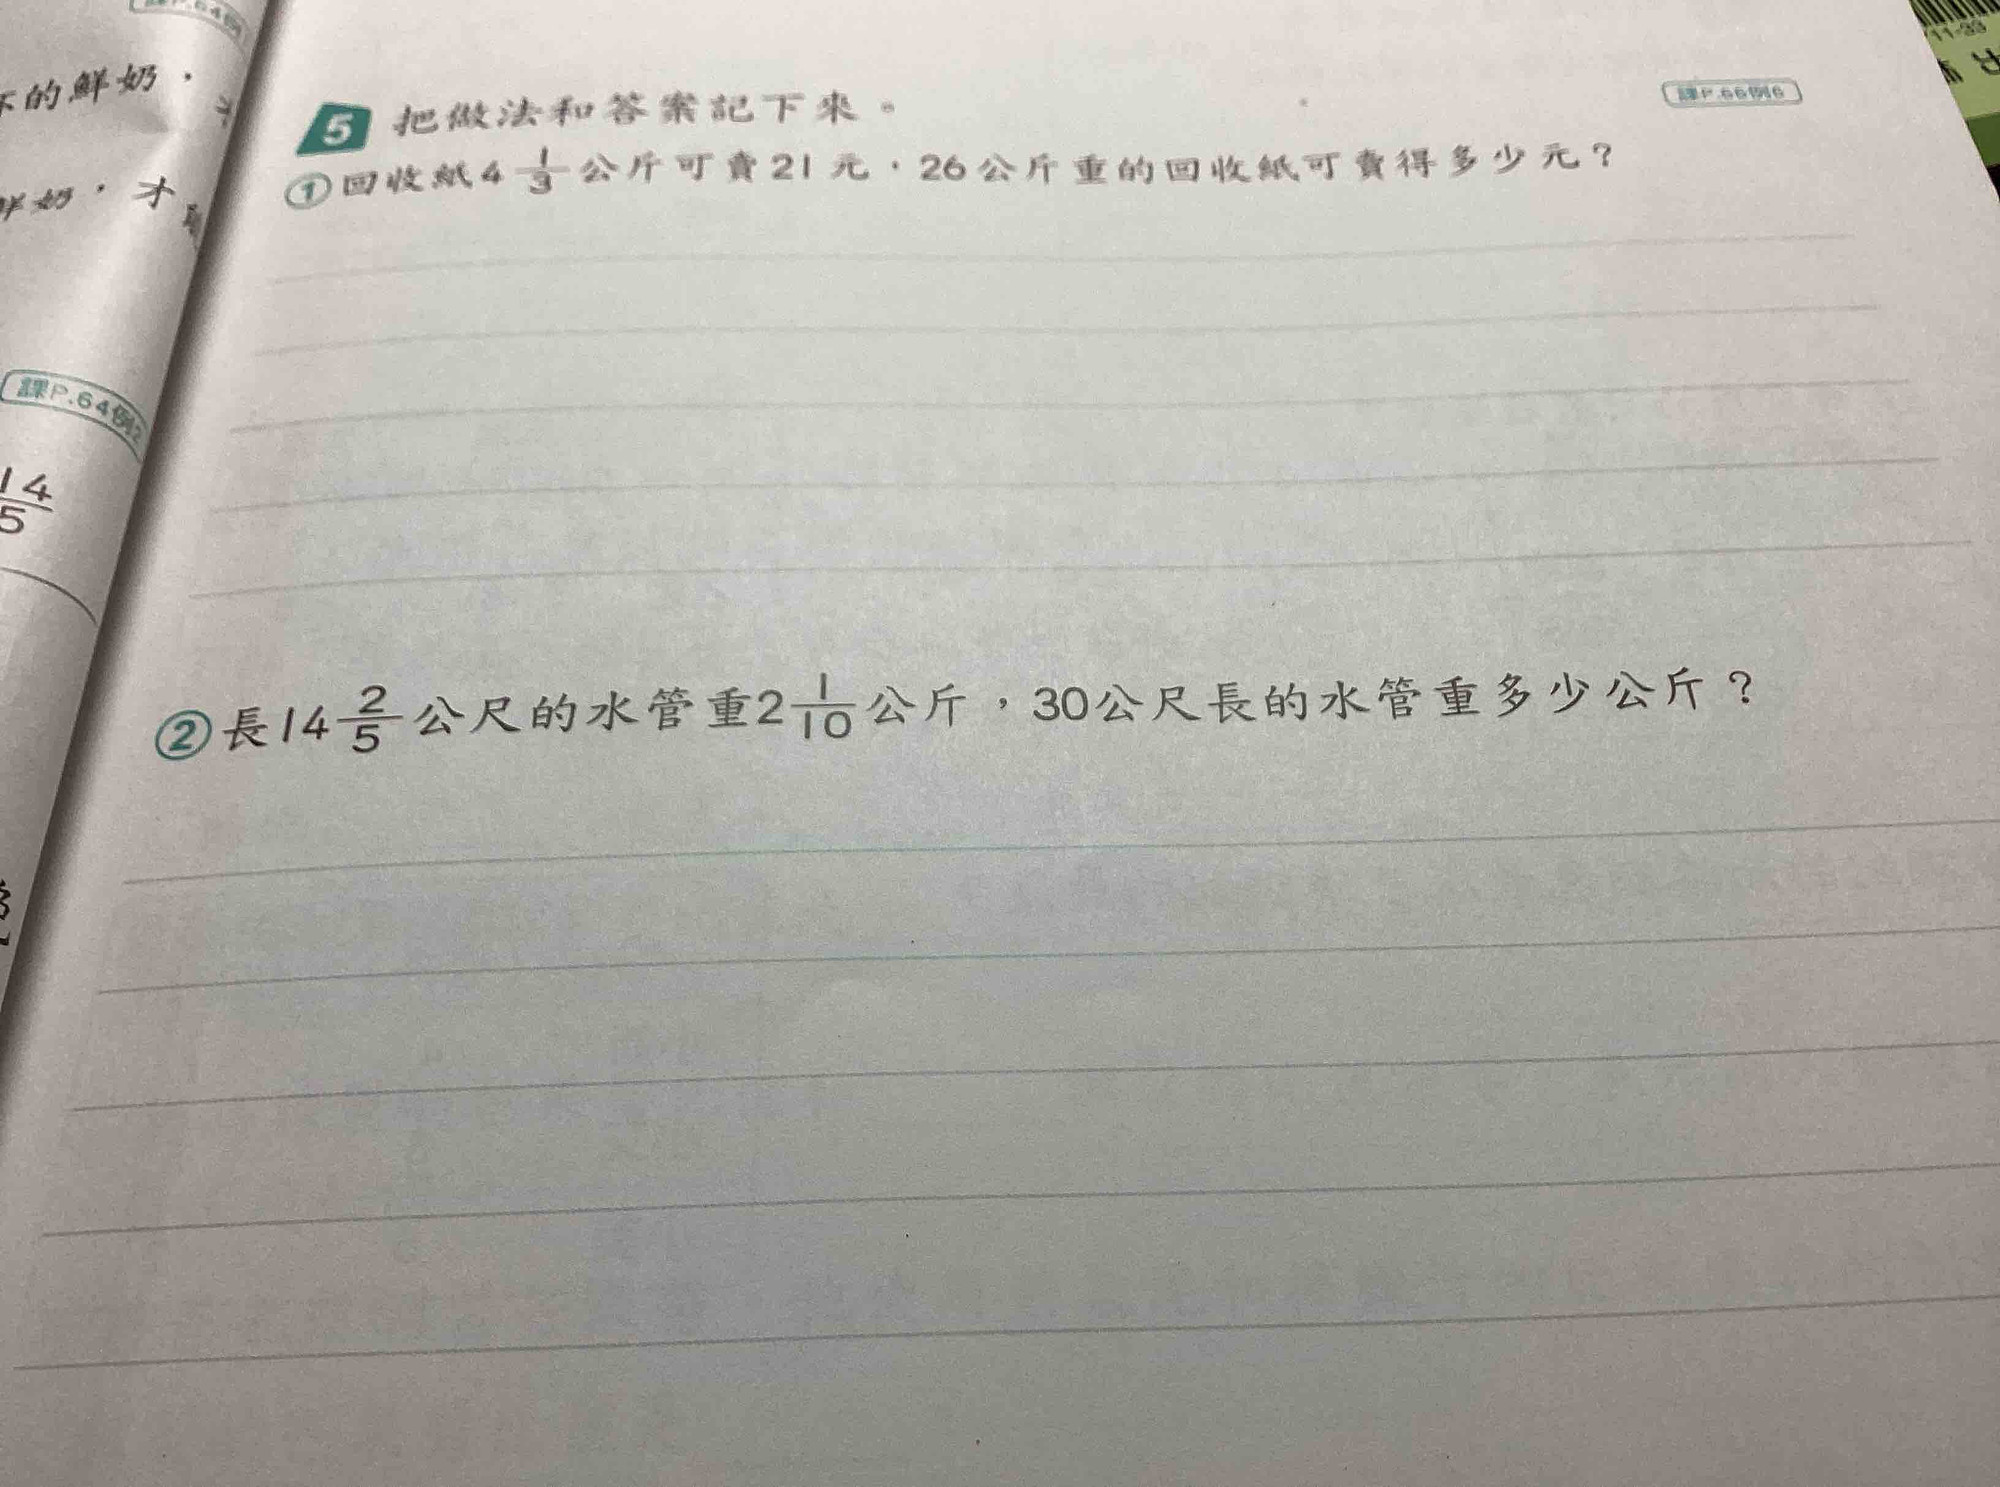 的鮮奶，
奶，才
課P.64例2
14/5
5 把做法和答案記下來。
課P.66例6
①回收紙4 1/3 公斤可賣21元，26公斤重的回收紙可賣得多少元？
②長14 2/5 公尺的水管重2 1/10 公斤，30公尺長的水管重多少公斤？